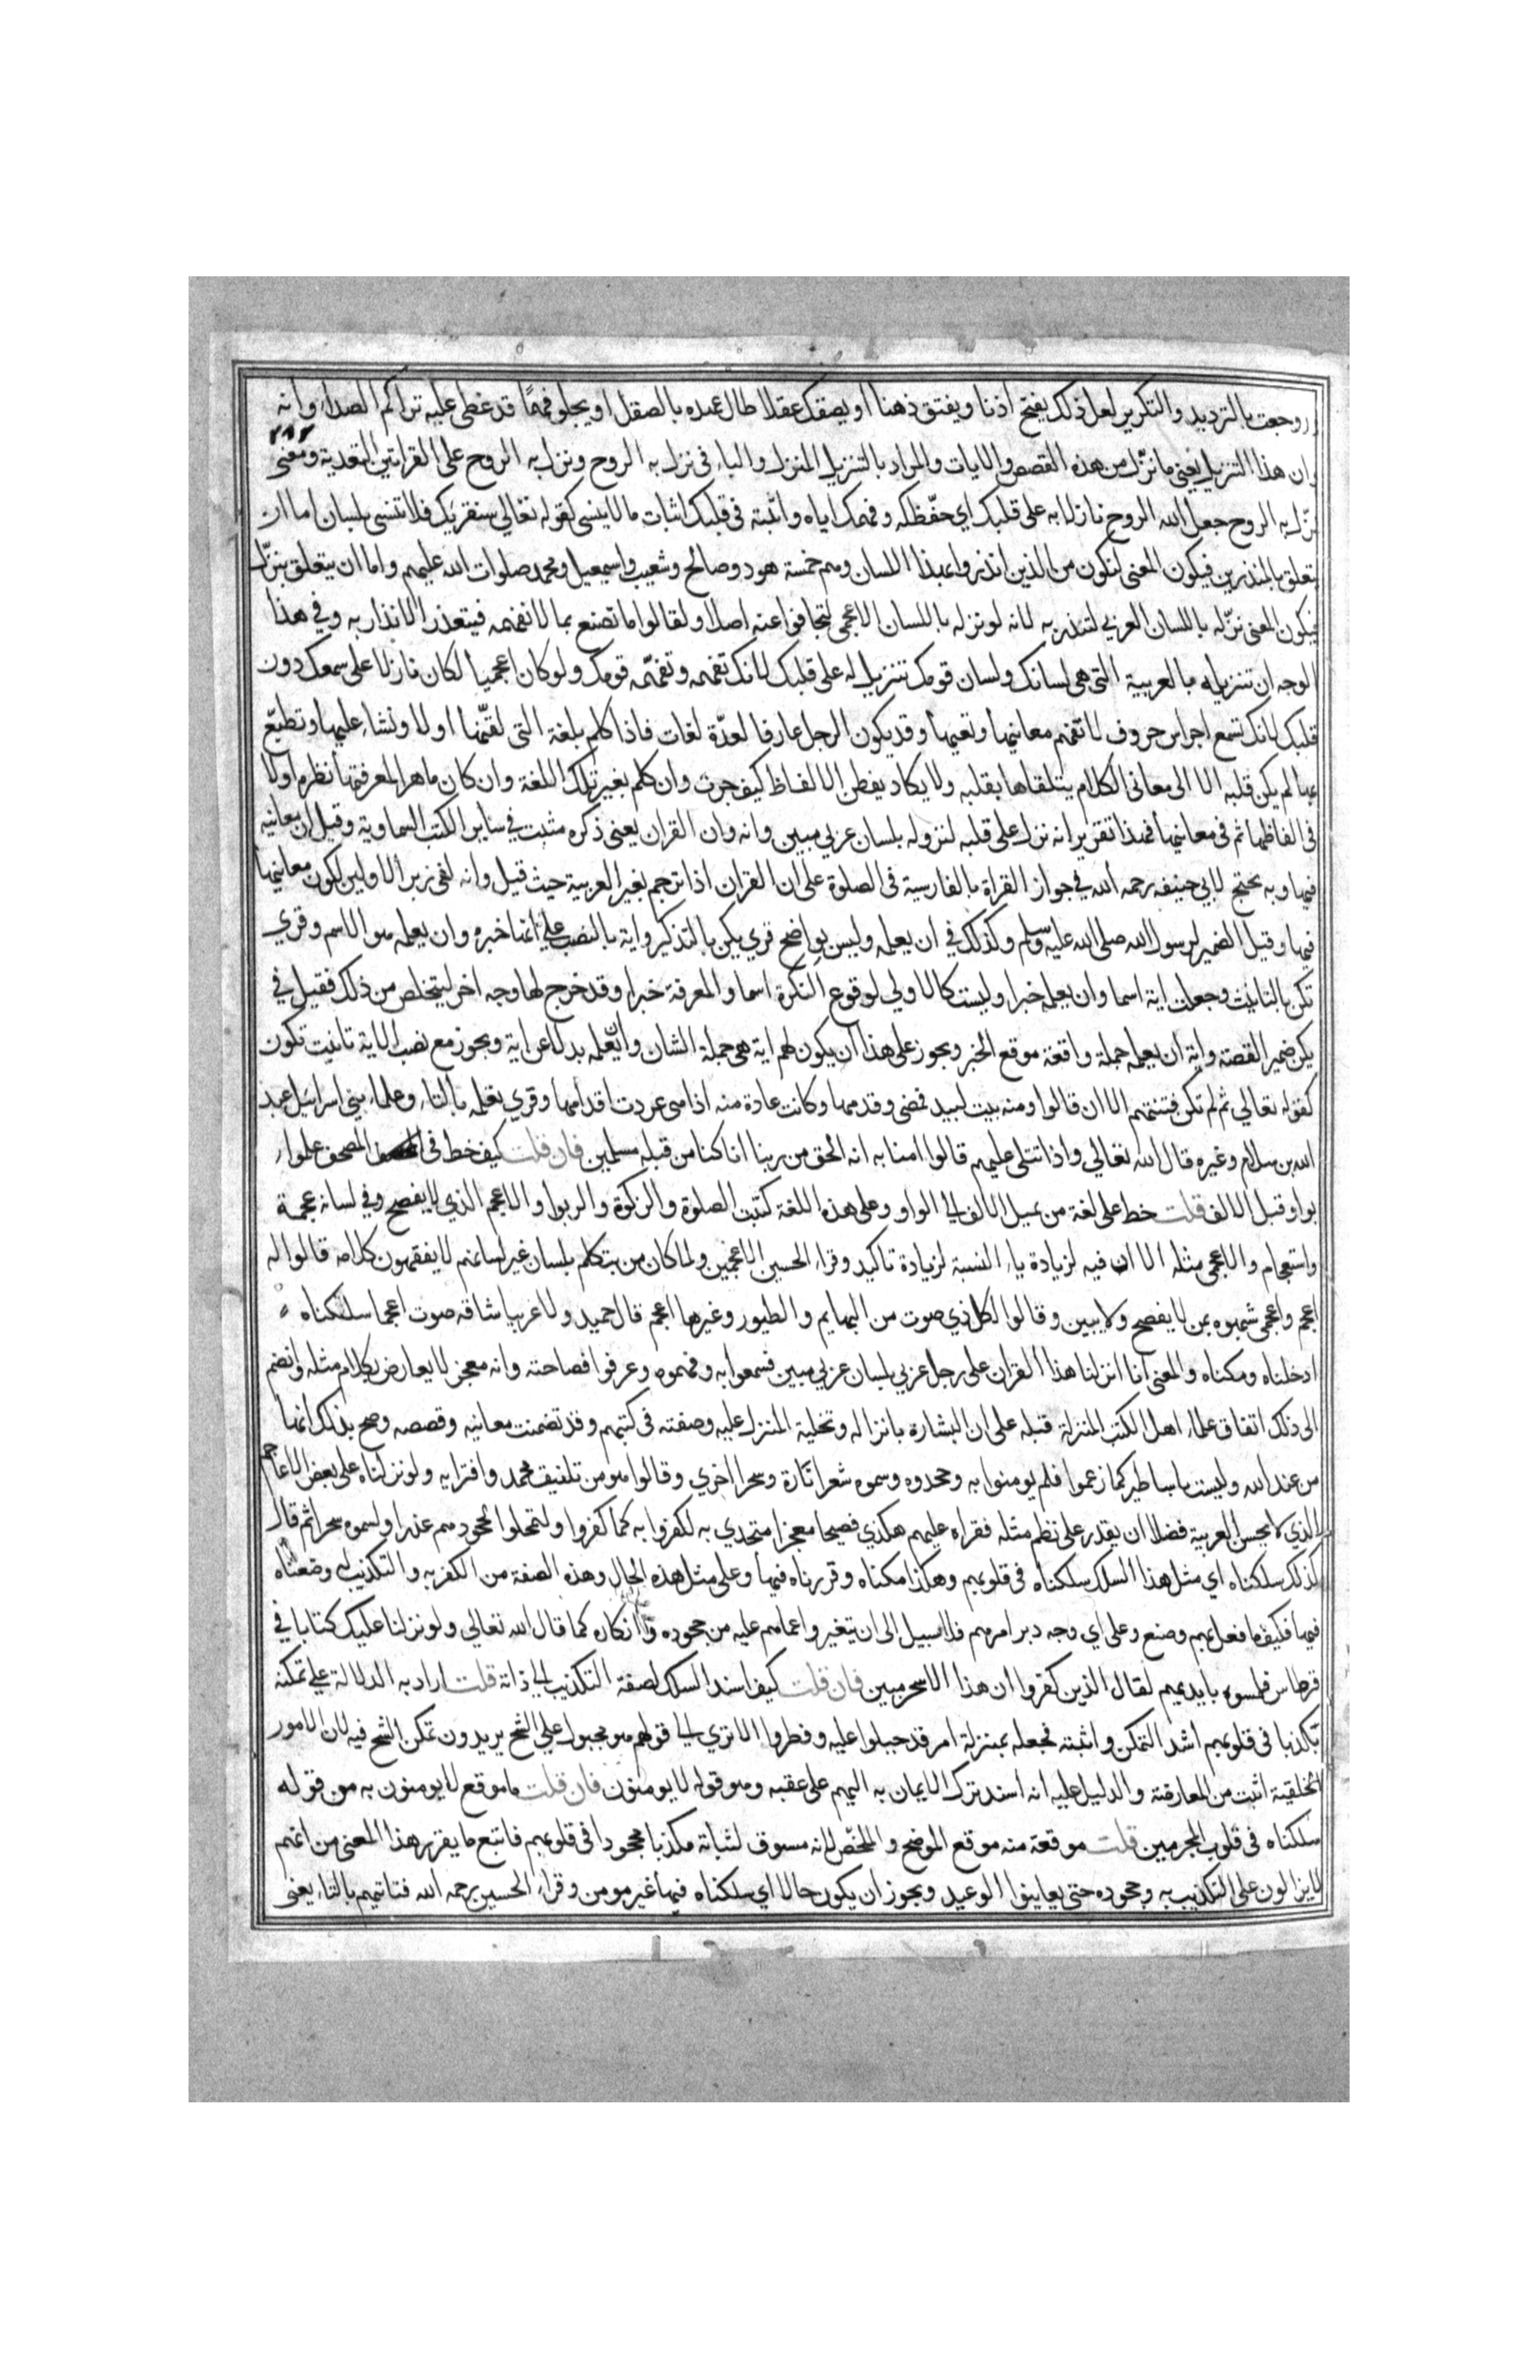 وروجعت بالترديد والتكرير لعل ذلك يفتح اذنا ويفتق ذهنا او يصقل عقلا طال عهده بالصقل او يجلو فهمًا قد غطى عليه تراكم الصداء وانه
٢٨٢
وان هذا التنزيل يعني ما نزّل من هذه القصص والايات والمراد بالتنزيل المنزل والباء في نزل به الروح ونزل به الروح على القراتين للتعدية ومعنى
نزّل به الروح جعل الله الروح نازلا به على قلبك اي حفّظكه وفهمك اياه واثبته في قلبك اثبات ما لا ينسى كقوله تعالي سنقريك فلا تنسى بلسان اما ان
يتعلق بالمنذرين فيكون المعنى لتكون من الذين انذروا بهذا اللسان وهم خمسة هود وصالح وشعيب واسمعيل ومحمد صلوات الله عليهم واما ان يتعلق بنزّل
فيكون المعنى نزّله باللسان العربي لتنذر به لانه لو نزله باللسان الاعجمى لتجافوا عنه اصلا ولقالوا ما نصنع بما لا نفهمه فيتعذر الانذار به وفي هذا
الوجه ان تنزيله بالعربية التى هى لسانك ولسان قومك تنزيل له على قلبك لانك تفهمه وتفهّمه قومك ولو كان اعجميا لكان نازلا على سمعك دون
قلبك لانك تسمع اجراس حروف لا تفهم معانيها ولا تعيها وقد يكون الرجل عارفا لعدّة لغات فاذا كلم بلغة التى لقّنها اولا ونشاء عليها وتطبّع
بها لم يكن قلبه الا الى معاني الكلام يتلقاها بقلبه ولا يكاد يفطن الالفاظ كيف جرت وان كلم بغير تلك اللغة وان كان ماهرا لمعرفتها نظره اولا
في الفاظها ثم في معانيها فهذا تقرير انه نزل على قلبه لنزوله بلسان عربي مبين وانه وان القران يعني ذكره مثبت في ساير الكتب السماوية وقيل ان معانيه
فيها وبه يحتج لابي حنيفه رحمه الله في جواز القراة بالفارسية في الصلوة على ان القران اذا ترجم بغير العربية حيث قيل وانه لفي زبر الاولين لكون معانيها
فيها وقيل الضمير لرسول الله صلى الله عليه وسلم وكذلك في ان يعلمه وليس بواضح قري يكن بالتذكير واية بالنصب على انها خبره وان يعلمه هو الاسم وقري
تكن بالتانيث وجعلت اية اسما وان يعلمه خبرا وليست كالاولي لوقوع النكرة اسما والمعرفة خبرا وقد خرج لها وجه اخر ليتخلص من ذلك فقيل في
يكن ضمير القصة واية ان يعلمه جملة واقعة موقع الخبر ويجوز على هذا ان يكون لهم اية هى جملة الشان وان يعلمه بدلا عن اية ويجوز مع نصب الاية تانيث تكون
كقوله تعالي ثم لم تكن فتنتهم الا ان قالوا ومنه بيت لبيد فمضى وقدمها وكانت عادة منه اذا هى عردت اقدامها وقري تعلمه بالتاء وعلماء بني اسرائيل عبد
الله بن سلام وغيره قال الله تعالي واذا تتلى عليهم قالوا امنا به انه الحق من ربنا انا كنا من قبله مسلمين فان قلت كيف خط في المصحف علموا
بواو قبل الالف قلت خط على لغة من يميل الالف الي الواو وعلى هذه اللغة كتبت الصلوة والزكوة والربوا والاعجم الذي لا يفصح وفي لسانه عجمة
واستعجام والاعجمى مثله الا ان فيه لزيادة ياء النسبة لزيادة تاكيد وقراء الحسن الاعجمين ولما كان من يتكلم بلسان غير لسانهم لا يفقهون كلامه قالوا له
اعجم واعجمى شبهوه بمن لا يفصح ولا يبين وقالوا لكل ذي صوت من البهايم والطيور وغيرها اعجم قال حميد ولا عربيا شاقه صوت اعجما سلكناه
ادخلناه ومكناه والمعنى انا انزلنا هذا القران على رجل عربي بلسان عربي مبين فسمعوا به وفهموه وعرفوا فصاحته وانه معجز لا يعارض بكلام مثله وانضم
الى ذلك اتفاق علماء اهل الكتب المنزلة قبله على ان البشارة بانزاله وتحلية المنزل عليه وصفته في كتبهم وقد تضمنت معانيه وقصصه وصح بذلك انها
من عند الله وليست باساطير كما زعموا فلم يومنوا به وجحدوه وسموه شعرا تارة وسحرا اخري وقالوا هو من تلفيق محمد وافترايه ولو نزلناه على بعض الاعاجم
الذي لا يحسن العربية فضلا ان يقدر على نظم مثله فقراه عليهم هكذي فصيحا معجزا متحدي به لكفروا به كما كفروا ولتمحلوا لجحودهم عذرا ولسموه سحرا ثم قال
كذلك سلكناه اي مثل هذا السلك سلكناه في قلوبهم وهكذا مكناه وقررناه فيها وعلى مثل هذه الحال وهذه الصفة من الكفر به والتكذيب له وضعناه
فيها فكيف ما فعل بهم وصنع وعلى اي وجه دبر امرهم فلا سبيل الى ان يتغيروا عما هم عليه من جحوده وانكاره كما قال الله تعالي ولو نزلنا عليك كتابا في
قرطاس فلمسوه بايديهم لقال الذين كفروا ان هذا الا سحر مبين فان قلت كيف اسند السلك لصفة التكذيب الي ذاته قلت اراد به الدلالة علي تمكنه
مكذبا في قلوبهم اشد التمكن واثبته فجعله بمنزلة امر قد جبلوا عليه وفطروا الا تري الي قولهم هو مجبول علي الشح يريدون تمكن الشح فيه لان الامور
الخلقية اثبت من العارضة والدليل عليه انه اسند ترك الايمان به اليهم على عقبه وهو قوله لا يومنون فان قلت ما موقع لا يومنون به من قوله
سلكناه في قلوب المجرمين قلت موقعه منه موقع الموضح والملخّص لانه مسوق لثباته مكذبا مجحودا في قلوبهم فاتبع ما يقرر هذا المعنى من انهم
لا يزالون على التكذيب به وجحوده حتى يعاينوا الوعيد ويجوز ان يكون حالا اي سلكناه فيها غير مومن وقراء الحسن رحمه الله فتاتيهم بالتاء يعنى